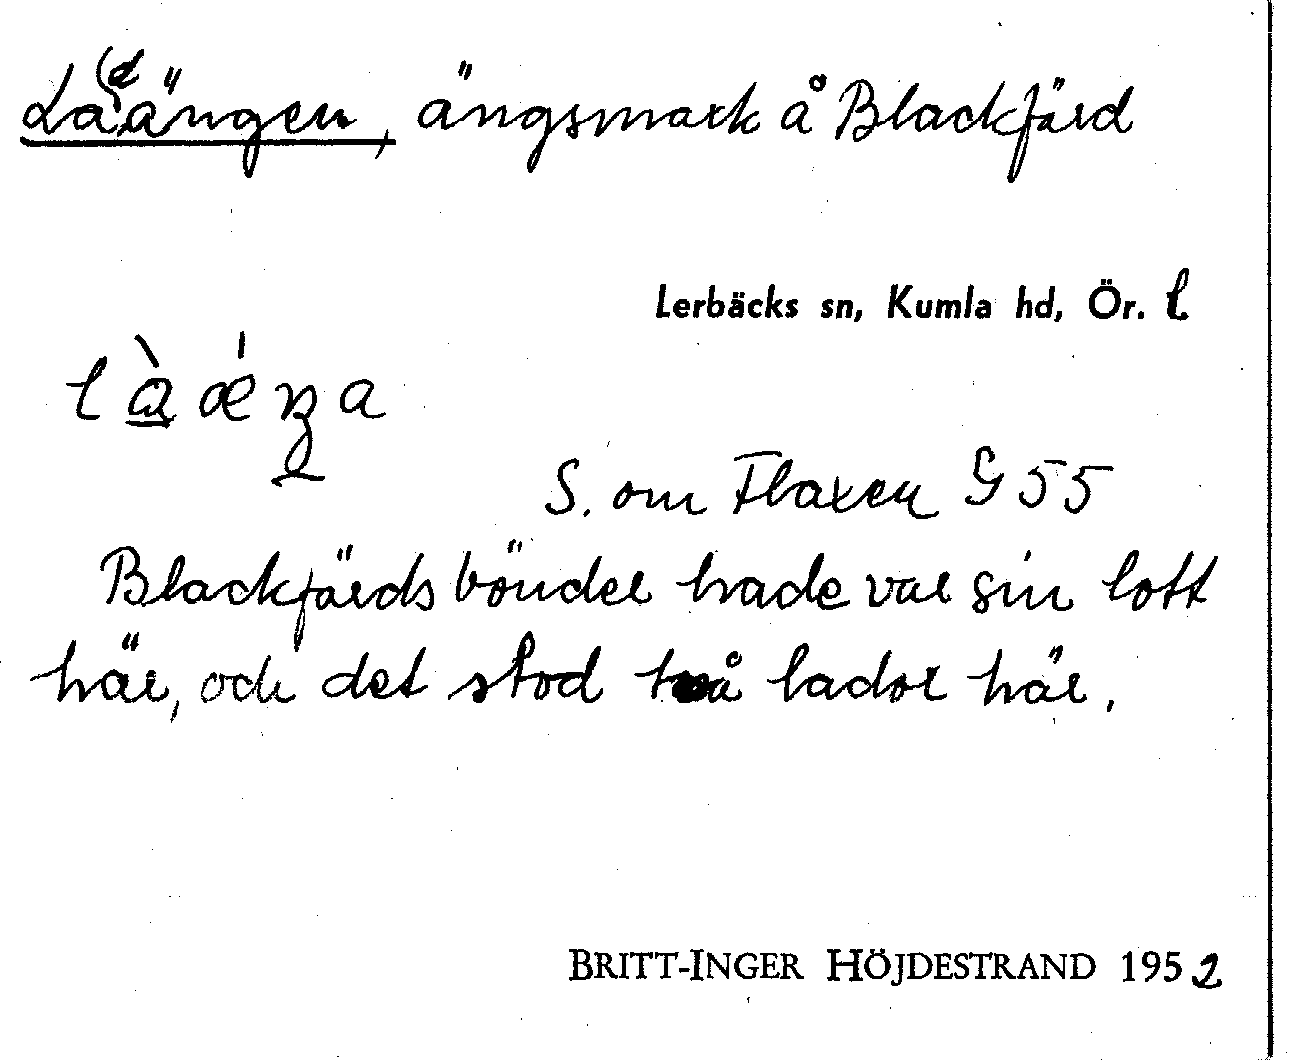 La(dängen, ängsmark å Blackfärd
Lerbäcks sn, Kumla hd, Ör. l
làǽŋa
S. om Flaxen G 55
Blackfärds bönder hade var sin lott
här, och det stod två lador här.
BRITT-INGER HÖJDESTRAND 1952